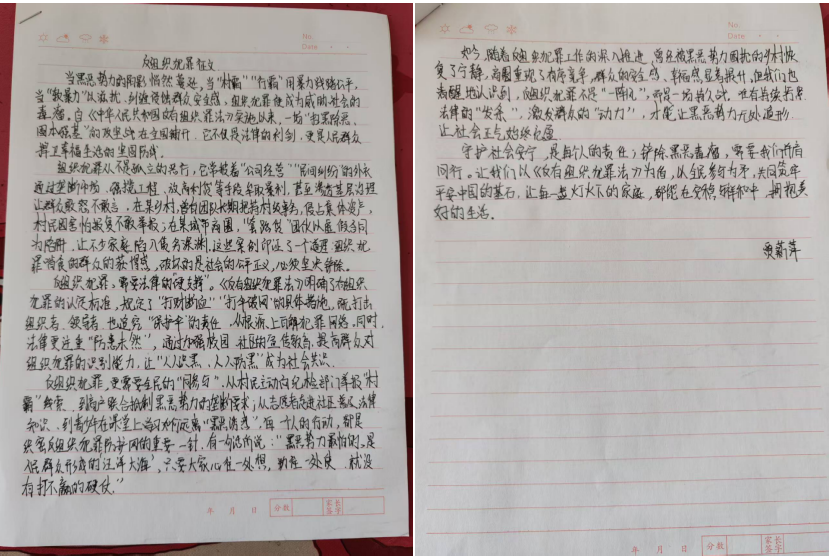 No:
Date
反组织犯罪征文
当黑恶势力的阴影悄然蔓延,当“村霸”“行霸”用暴力践踏公平,
当“软暴力”以滋扰、纠缠侵蚀群众安全感,组织犯罪便成为威胁社会的
毒瘤。自《中华人民共和国反有组织犯罪法》实施以来,一场“扫黑除恶、
固本强基”的攻坚战在全国铺开。它不仅是法律的利剑,更是人民群众
捍卫幸福生活的坚固防线。
组织犯罪从不是孤立的恶行,它常披着“公司经营”“民间纠纷”的外衣
通过垄断市场、强揽工程、放高利贷等手段牟取暴利,甚至渗透基层治理
让群众敢怒不敢言。在某乡村,曾有团队长期把持村级事务,侵占集体资产,
村民因害怕报复不敢举报;在某城市商圈,“套路贷”团伙以虚假合同
为陷阱,让不少家庭陷入债务深渊。这些案例印证了一个道理:组织犯
罪啃食的群众的获得感,破坏的是社会的公平正义,必须坚决铲除。
反组织犯罪,需要法律的“硬支撑”。《反有组织犯罪法》明确了有组织
犯罪的认定标准,规定了“打财断血”“打伞破网”的具体措施,既打击
组织者、领导者,也追究“保护伞”的责任,从根源上瓦解犯罪网络。同时,
法律更注重“防患未然”,通过加强校园、社区的宣传教育,提高群众对
组织犯罪的识别能力,让“人人识黑、人人防黑”成为社会共识。
反组织犯罪,更需要全民的“同答卷”。从村民主动向纪检部门举报“村
霸”线索,到商户联合抵制黑恶势力的垄断要求;从志愿者走进社区普及法律
知识,到青少年在课堂上学习如何远离“黑恶诱惑”,每一个人的行动,都是
织密反组织犯罪防护网的重要一针。有一句话所说:“黑恶势力最怕的,是
人民群众形成的‘汪洋大海’,只要大家心往一处想,劲往一处使,就没
有打不赢的硬仗。”
年 月 日 分数 家长签字
No:
Date
如今,随着反组织犯罪工作的深入推进,曾经被黑恶势力困扰的乡村恢
复了宁静,商圈重现了有序竞争,群众的安全感、幸福感显著提升。但我们也
清醒地认识到,反组织犯罪不是“一阵风”,而是一场持久战。唯有持续拧紧
法律的“发条”,激发群众的“动力”,才能让黑恶势力无处遁形,
让社会正气始终充盈。
守护社会安宁,是每个人的责任;铲除黑恶毒瘤,需要我们并肩
同行。让我们以《反有组织犯罪法》为盾,以全民参与为矛,共同筑牢
平安中国的基石,让每一盏灯火下的家庭,都能在安稳、祥和中,拥抱美
好的生活。
贾新萍
年 月 日 分数 家长签字